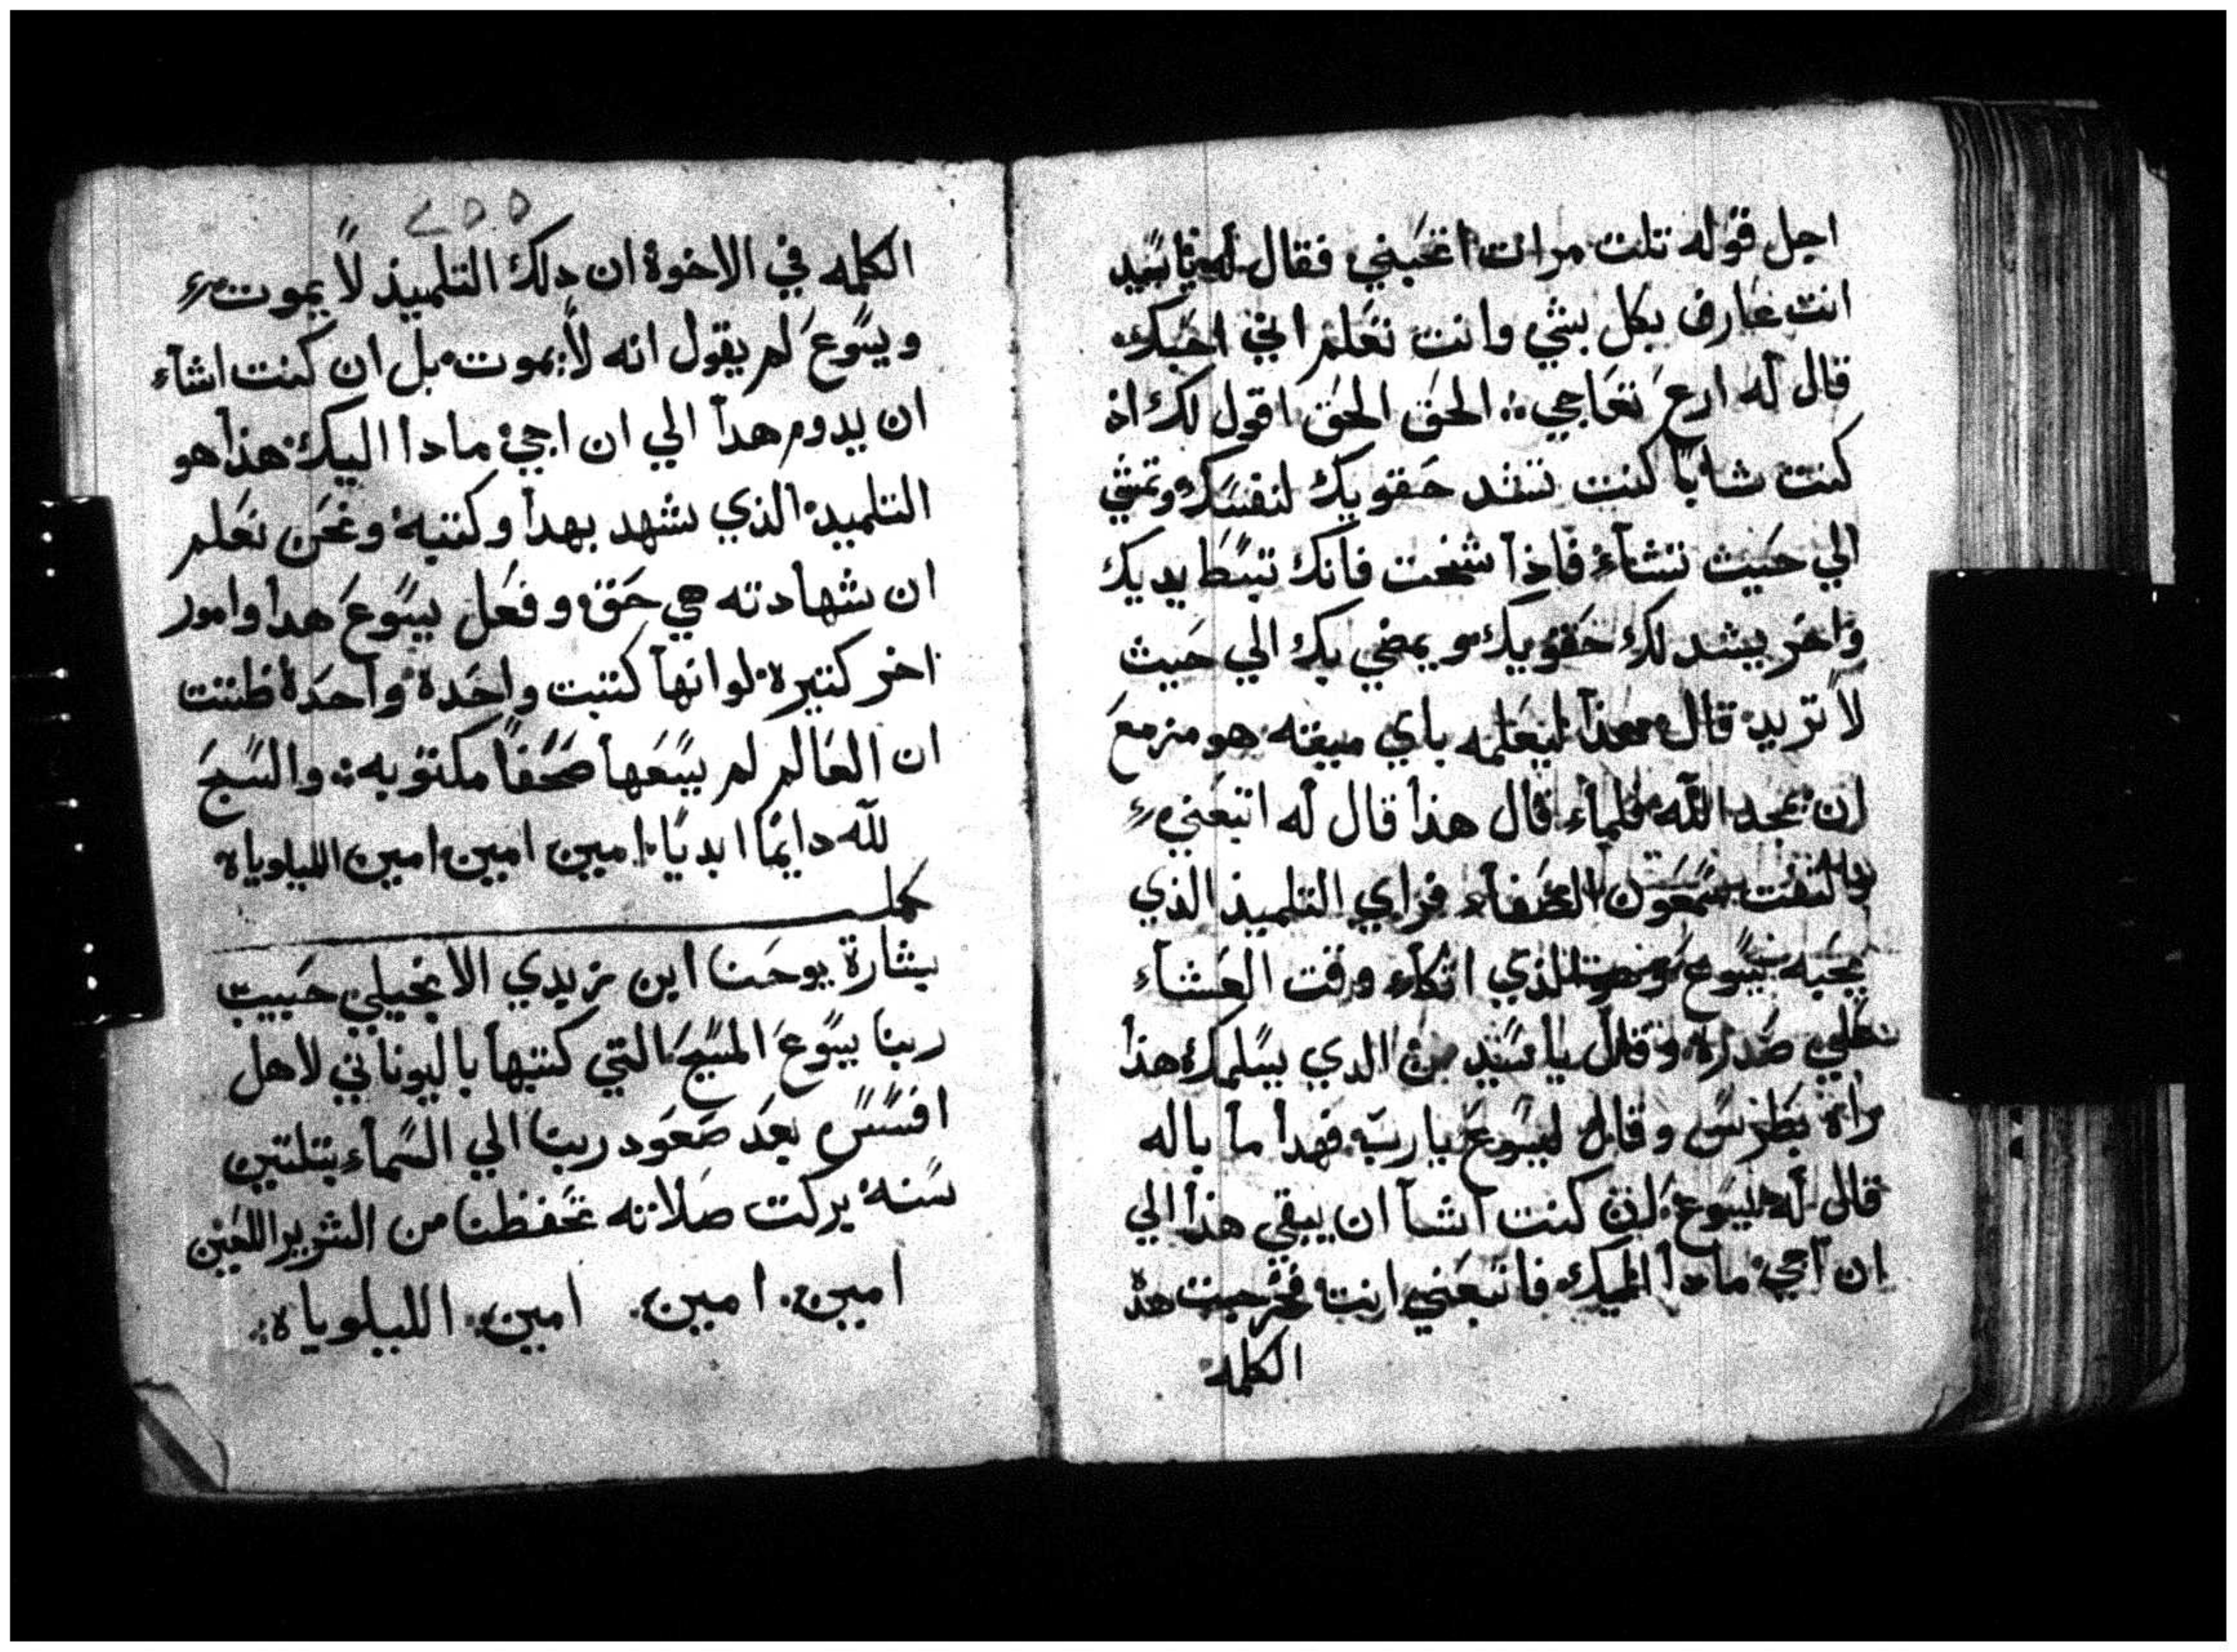 اجل قوله تلت مرات اتحبني فقال له يا سيد
انت عارف بكل بشي وانت تعلم اني احبك
قال له ارع نعاجي الحق الحق اقول لك اذ
كنت شابا كنت تشد حقويك لنفسك وتمشي
الي حيث تشاء فاذا شخت فانك تبسط يديك
واخر يشد لك حقويك ويمضي بك الي حيث
لا تريد قال هذا ليعلمه باي ميته هو مزمع
ان يمجد الله فلماء قال هذا قال له اتبعني
والتفت سمعون الصفاء فراي التلميذ الذي
يحبه يسوع الذي اتكاء وقت العشاء
علي صدره وقال يا سيد من الدي يسلمك هذا
راه بطرس وقال ليسوع يا رب فهدا ما باله
قال له يسوع ان كنت اشا ان يبقي هذا الي
ان اجي مادا اليك فاتبعني انت فخرجت هذه
الكلمه
٢٥٥
الكلمه في الاخوة ان دلك التلميذ لا يموت
ويسوع لم يقول انه لا يموت بل ان كنت اشاء
ان يدوم هدا الي ان اجي مادا اليك هذا هو
التلميد الذي شهد بهدا وكتبه ونحن نعلم
ان شهادته هي حق وفعل يسوع هدا وامور
اخر كتيرة لو انها كتبت واحدة واحدة ظننت
ان العالم لم يسعها صحفا مكتوبه والسبح
لله دايما ابديا امين امين امين الليلوياه
كملت
بشارة يوحنا ابن زبدي الانجيلي حبيب
ربنا يسوع المسيح التي كتبها باليوناني لاهل
افسس بعد صعود ربنا الي السماء بتلتين
سنه بركت صلاته تحفظنا من الشرير اللعين
امين امين امين الليلوياه